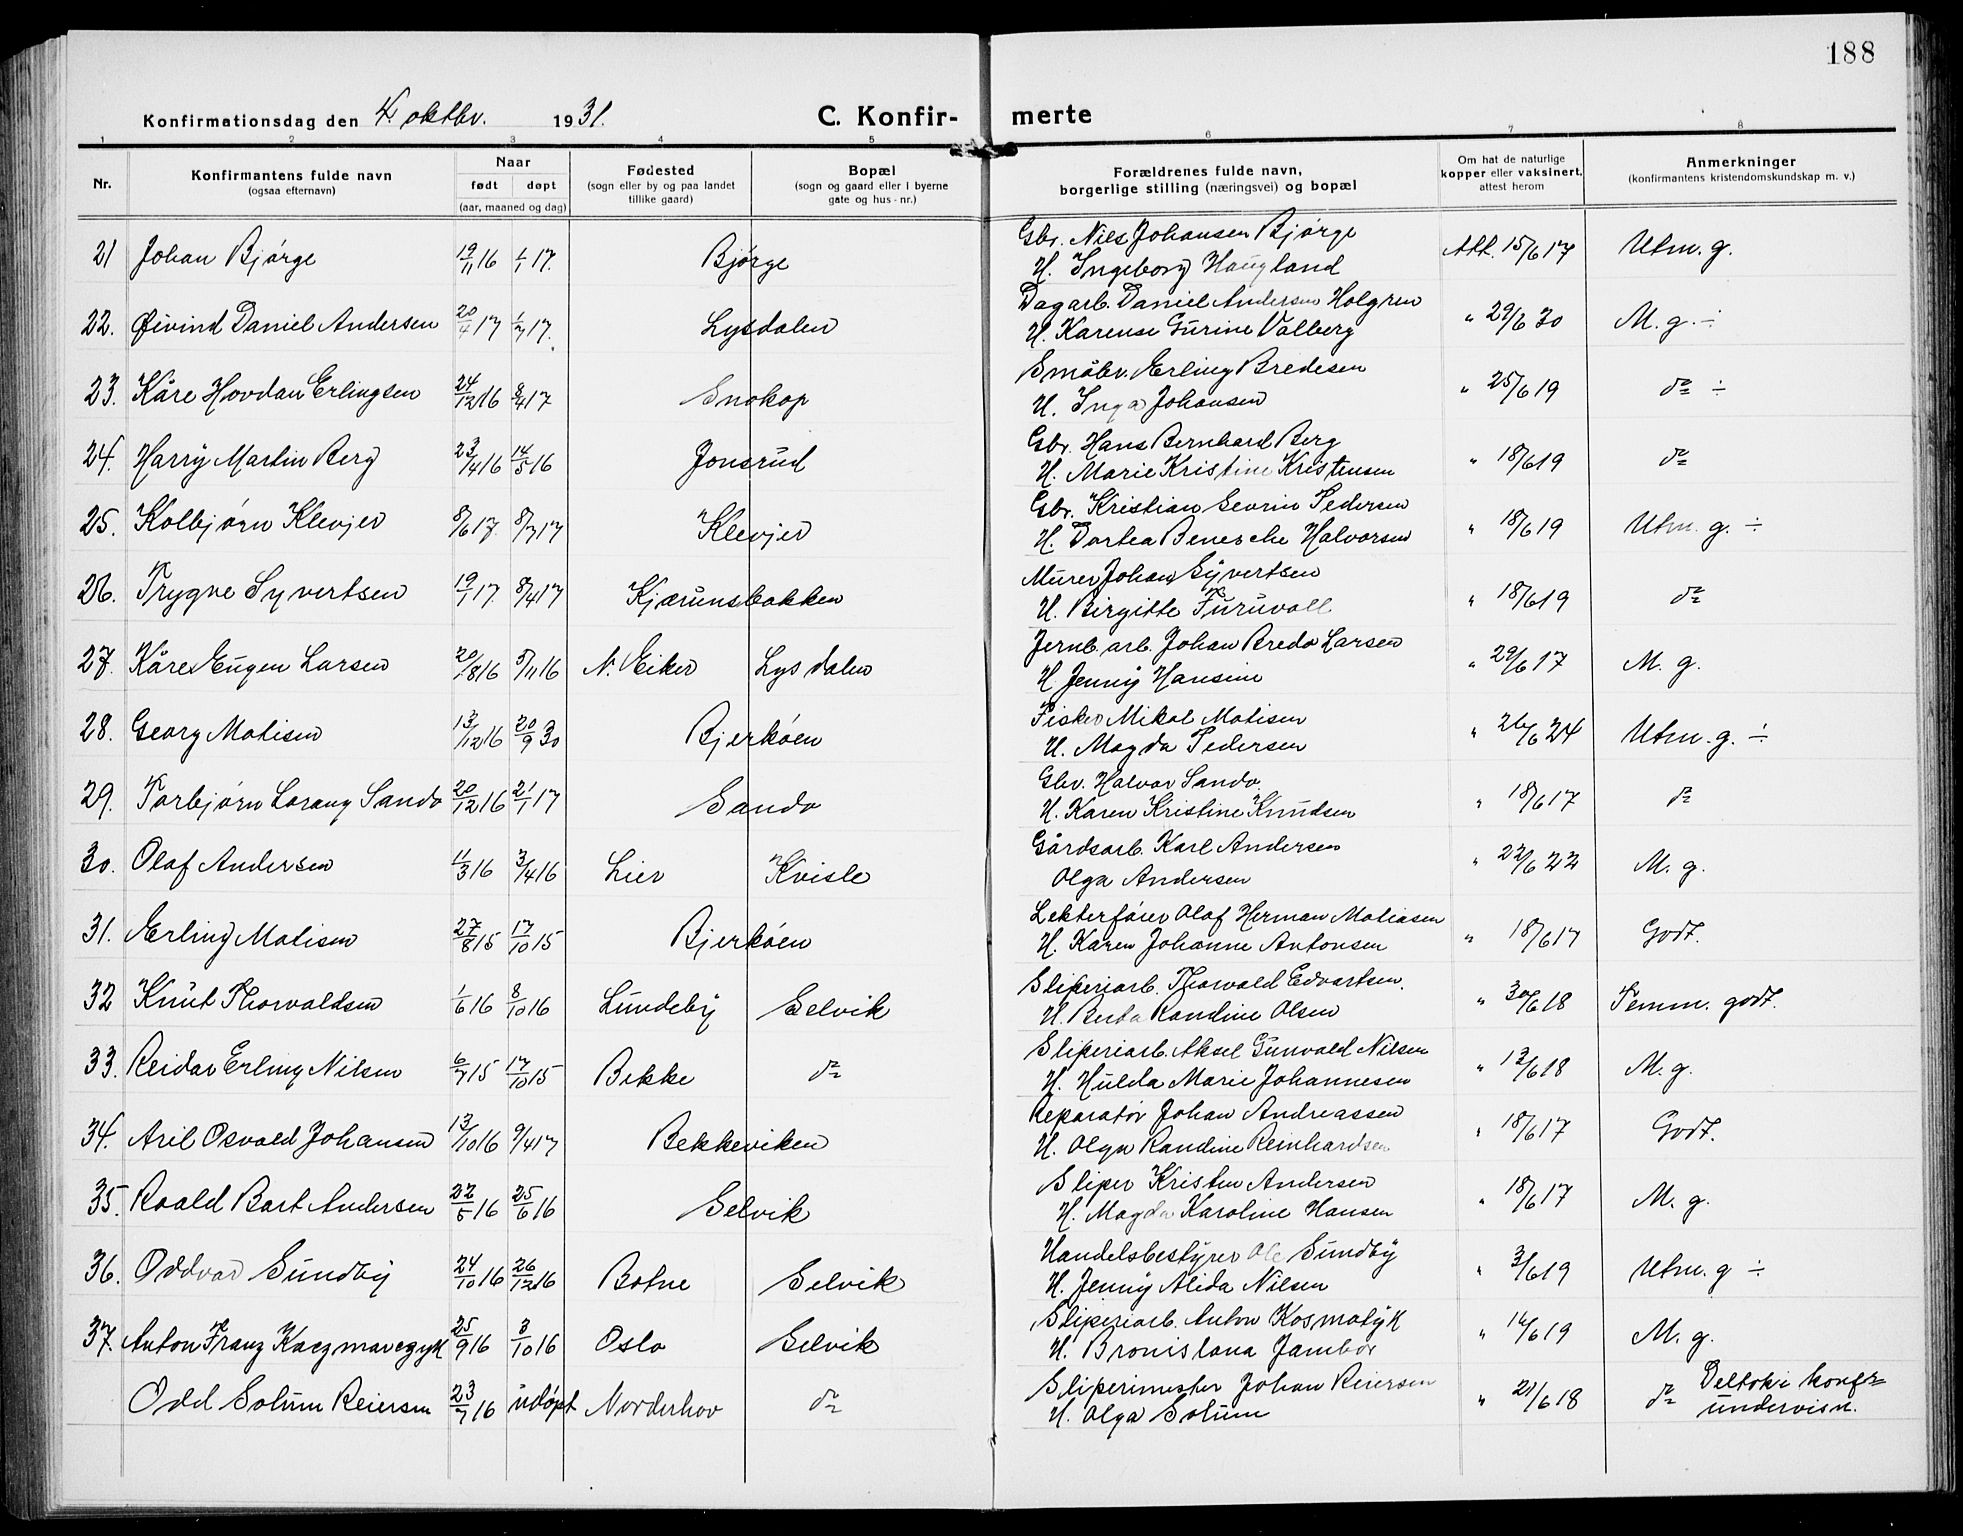 188
Konfirmationsdag den 4. oktbr. 1931. C. Konfir- merte
1 2 3 4 5 6 7 8
Nr.
Konfirmantens fulde navn
(ogsaa efternavn)
Naar
født døpt
(aar, maaned og dag)
Fødested
(sogn eller by og paa landet
tillike gaard)
Bopæl
(sogn og gaard eller i byerne
gate og hus-nr.)
Forældrenes fulde navn,
borgerlige stilling (næringsvei) og bopæl
Om hat de naturlige
kopper eller vaksinert,
attest herom
Anmerkninger
(konfirmantens kristendomskundskap m. v.)
21 Johan Bjørge 19/11 16 1/1 17. Bjørge Gbr. Nils Johansen Bjørge Att. 15/6 17 Utm. g.
H. Ingeborg Haugland
22. Øivind Daniel Andersen 20/4 17 1/7 17. Lysdalen Dagarb. Daniel Andersen Holgren " 29/6 30 M. g. ÷
H. Karense Gurine Valberg
23. Kåre Hovdan Erlingsen 24/12 16 8/4 17 Snekop Småbr. Erling Bredesen " 25/6 19 do ÷
H. Inga Johansen
24. Harry Martin Berg 23/4 16 14/5 16 Jonsrud Gbr. Hans Bernhard Berg " 18/6 19 do
H. Marie Kristine Kristensen
25. Kolbjørn Klevjer 8/6 17. 8/7 17 Klevjer Gbr. Kristian Sevrin Pedersen " 18/6 19 Utm. g. ÷
H. Dortea Benesche Halvorsen
26. Trygve Syvertsen 19/1 17. 8/4 17 Kjærunsbakken Murer Johan Syvertsen " 18/6 19 do
H. Birgitte Furuvall
27. Kåre Eugen Larsen 20/8 16 5/11 16 N. Eiker Lysdalen Jernb.arb. Johan Bredo Larsen " 29/6 17 M. g.
H. Jenny Hansine
28. Georg Matisen 13/12 16 20/9 30 Bjerkøen Fisker Mikal Matisen " 26/6 24 Utm. g. ÷
H. Magda Pedersen
29. Torbjørn Lorang Sando 20/12 16 21/1 17 Sando Gbr. Halvor Sando. " 18/6 17 do
H. Karen Kristine Knudsen
30. Olaf Andersen 11/3 16 3/4 16 Lier Kvisle Gårdsarb. Karl Andersen " 22/6 22 M. g.
Olga Andersen
31. Erling Matisen 27/8 15 17/10 15 Bjerkøen Lekterfører Olaf Herman Matiasen " 18/6 17 Godt.
H. Karen Johanne Antonsen
32 Knut Thorvaldsen 1/6 16 8/10 16 Lundeby Selvik Sliperiarb. Thorvald Edvartsen. " 30/6 18 Temm. godt.
H. Berta Randine Olsen
33. Reidar Erling Nilsen 6/7 15 17/10 15 Bekke do Sliperiarb. Aksel Gunvald Nilsen " 13/6 18 M. g.
H. Hulda Marie Johannesen
34. Aril Osvald Johansen 13/10 16 9/4 17 Bekkeviken Reparatør Johan Andreassen " 18/6 17 Godt.
H. Olga Randine Reinhardsen
35. Roald Bart Andersen 22/5 16 25/6 16 Selvik Sliper Kristen Andersen " 18/6 17 M. g.
H. Magda Karoline Hansen
36. Oddvar Sundby 24/10 16 26/12 16 Botne Selvik Handelsbestyrer Ole Sundby " 3/6 19 Utm. g ÷
H. Jenny Alida Nilsen
37. Anton Franz Kaczmarczyk 25/9 16 3/10 16 Oslo Selvik Sliperiarb. Anton Kosmatyk " 14/6 19 M. g.
H. Bronislana Jambor
Odd Solum Reiersen 23/7 16 udøpt Norderhov do Sliperimester Johan Reiersen " 21/6 18 do Deltok i konfr=
H. Olga Solum undervisn.